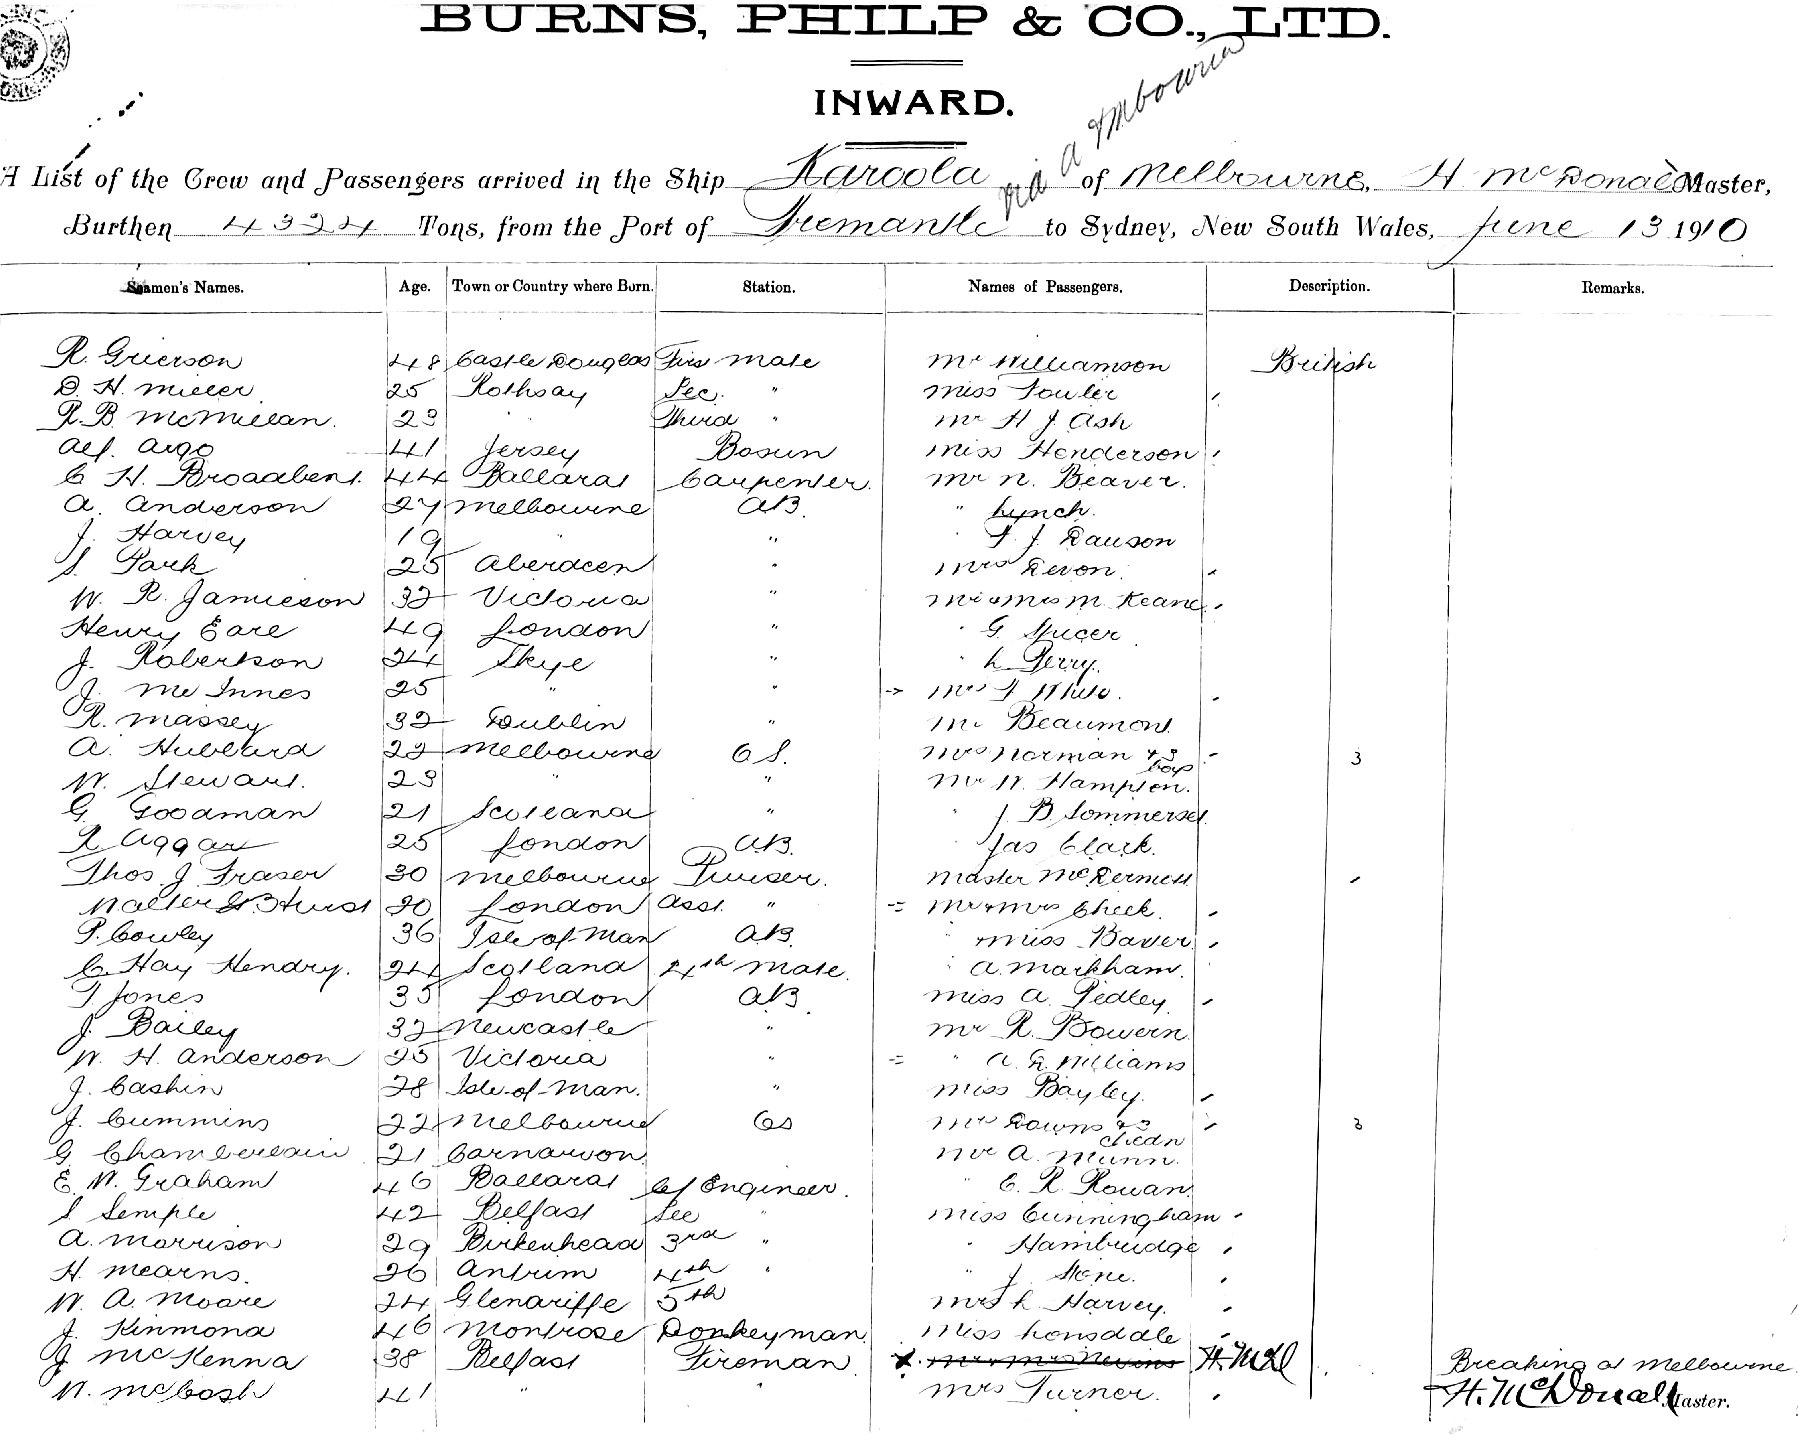 BURNS, PHILP & CO., LTD.
INWARD.
A List of the Crew and Passengers arrived in the Ship Karoola of Melbourne, H McDonald Master,
Burthen 4324 Tons, from the Port of Fremantle to Sydney, New South Wales, June 13 1910
Seamen's Names. Age. Town or Country where Born. Station. Names of Passengers. Description. Remarks.
R. Grierson 48 Castle Douglas Firs mate Mr Williamson British
D. H. Miller 25 Rothsay Sec. " Miss Fowler
R. B. McMillan. 23 " Third " Mr H J. Ash
Alf. Argo 41 Jersey Bosun Miss Henderson
C H. Broadbent. 44 Ballarat Carpenter. Mr N. Beaver.
A. Anderson 27 Melbourne AB. " Lynch.
J. Harvey 19 " " F. J. Dawson
S. Park 25 Aberdeen " Mrs Devon.
W. R. Jamieson 32 Victoria " Mr & Mrs M. Keane
Henry Eare 49 London " " G. Spicer
J. Robertson 24 Skye " " L. Perry.
J. McInnes 25 " " Mrs F White.
R. Massey 32 Dublin " Mr Beaumont
A. Hubbard 22 Melbourne OS. Mrs Norman & 3 boys 3
W. Stewart. 23 " " Mr W. Hampton.
G. Goodman 21 Scotland " " J. B. Sommerset.
R Aggar 25 London AB. " Jas Clark.
Thos J Fraser 30 Melbourne Purser. Master McDermott
Walter Hurst 20 London Asst. " Mr & Mrs Cheek.
P. Cowley 36 Isle of Man AB. " Miss Baver
C. Hay Hendry. 24 Scotland 4th Mate. " A. Markham.
T Jones 35 London AB Miss A. Pedley.
J. Bailey 32 Newcastle " Mr R. Bowern
W. H. Anderson 25 Victoria " " A. G. Williams
J. Cashin 28 Isle-of-Man. " Miss Bayley.
J. Cummins 22 Melbourne OS Mrs Downs & 3 chedn 3
G Chamberlain 21 Carnarvon. Mr A. Munn.
E. W. Graham 46 Ballarat Cf Engineer. " C. R. Rowan
S Semple 42 Belfast Sec " Miss Cunningham
A. Morrison 29 Birkenhead 3rd " " Hambridge
H. Mearns. 26 Antrim 4th " " J. Stone.
W. A. Moore 24 Glenariffe 5th Mrs L. Harvey.
J. Kinmond 46 Montrose Donkeyman. Miss Lonsdale
J McKenna 38 Belfast Fireman Mr & Mrs Nevins H. McD Breaking at Melbourne
W. McCosh 41 " " Mrs Turner. H. McDonald Master.
via Ambouria